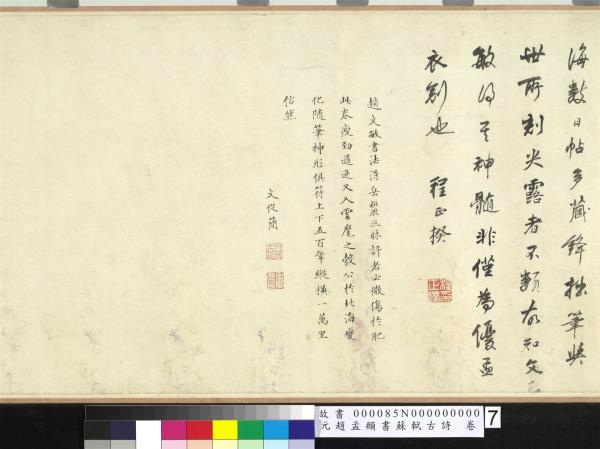 海數日帖多藏鋒拙筆與
世所刻尖露者不類故知文
敏得其神髓非僅為優孟
衣劍也 程正揆
趙文敏書法得岳麓三昧評者必微傷於肥
此卷瘦勁遒逸又入雲麾之彀公於北海變
化隨筆神形俱符上下五百年縱橫一萬里
信然
文從簡
故書 000085N000000000
元趙孟頫書蘇軾古詩 卷
7